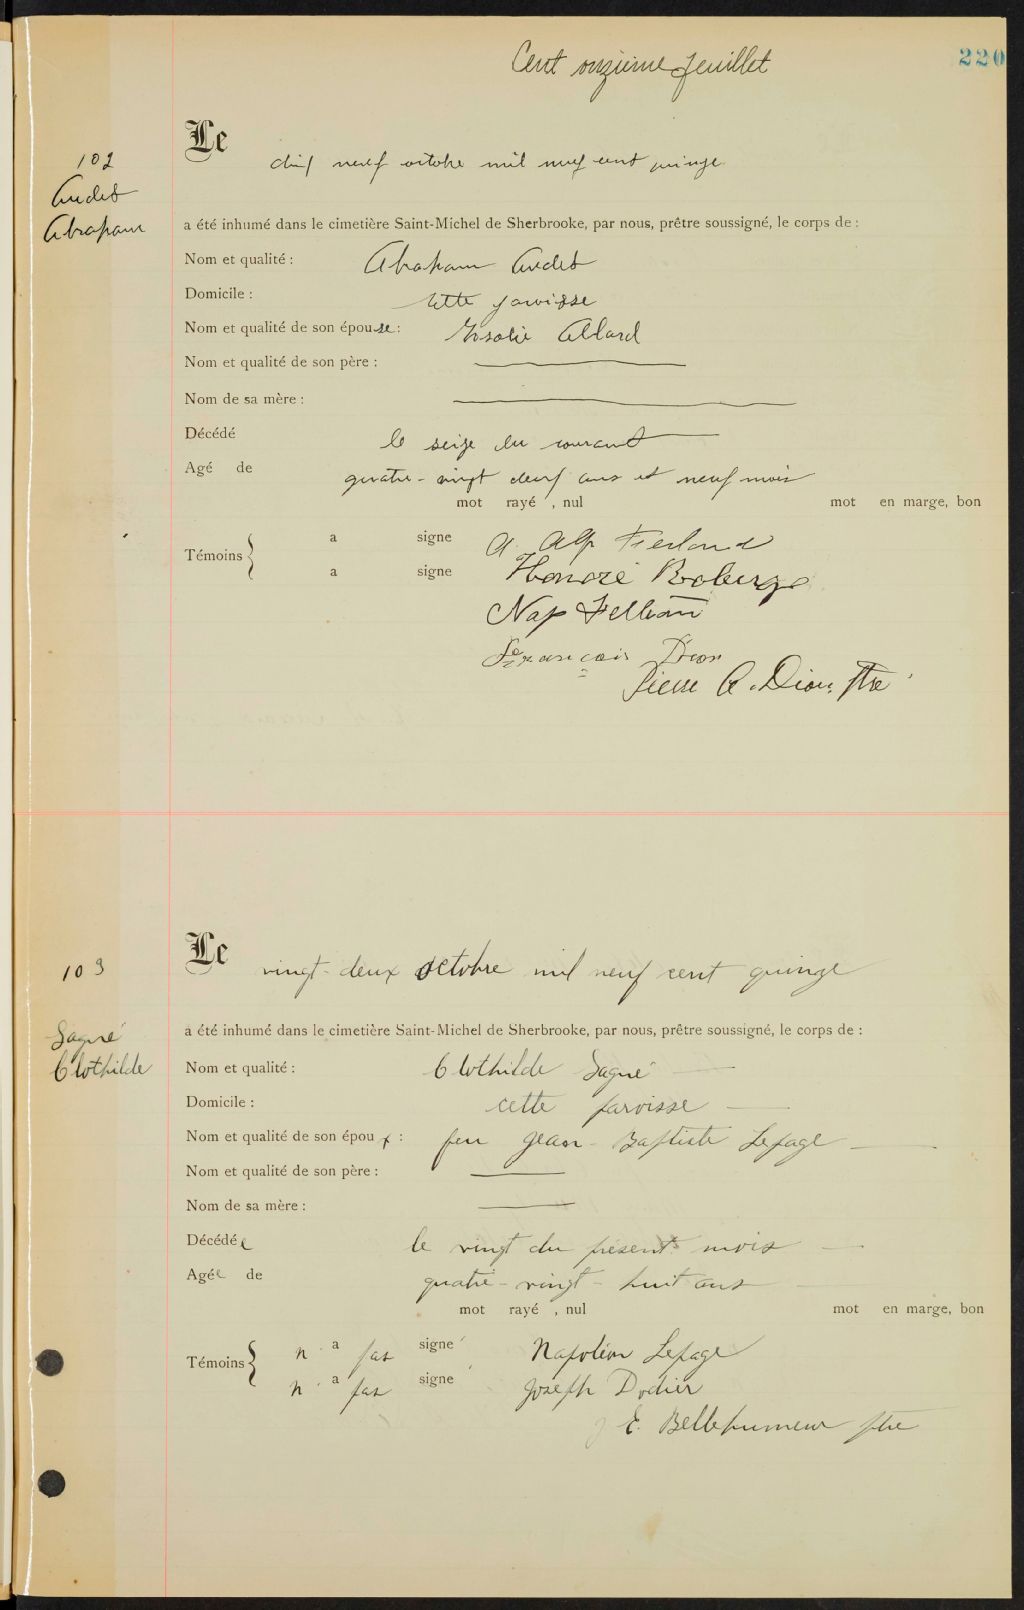 Cent onzième feuillet
220
102
Audet
Abraham
Le
dix neuf octobre mil neuf cent quinze
a été inhumé dans le cimetière Saint-Michel de Sherbrooke, par nous, prêtre soussigné, le corps de :
Nom et qualité : Abraham Audet
Domicile : cette paroisse
Nom et qualité de son épouse : Rosalie Allard
Nom et qualité de son père :
Nom de sa mère :
Décédé le seize du courant
Agé de quatre-vingt deux ans et neuf mois
mot rayé , nul mot en marge, bon
Témoins { a signe A. Alp
a signe Honoré Roberge
Nap
François Dion
Pierre A. Dion, Ptre
103
Gagné
Clothilde
Le vingt-deux octobre mil neuf cent quinze
a été inhumé dans le cimetière Saint-Michel de Sherbrooke, par nous, prêtre soussigné, le corps de :
Nom et qualité : Clothilde Gagné
Domicile : cette paroisse
Nom et qualité de son époux : feu Jean-Baptiste Lepage
Nom et qualité de son père :
Nom de sa mère :
Décédée le vingt du présent mois
Agée de quatre-vingt-huit ans
mot rayé , nul mot en marge, bon
Témoins { n' a pas signé Napoléon Lepage
n' a pas signé Joseph Dodier
J E. Bellehumeur ptre